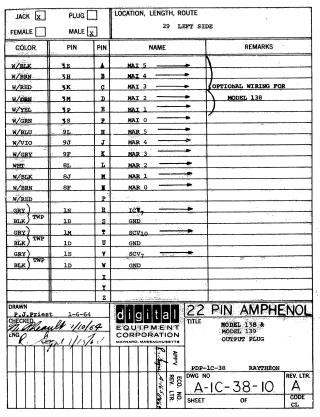 JACK X PLUG LOCATION, LENGTH, ROUTE
FEMALE MALE X 29 LEFT SIDE
COLOR PIN PIN NAME REMARKS
W/BLK 3E A MAI 5
W/BRN 3H B MAI 4
W/RED 3K C MAI 3 OPTIONAL WIRING FOR
W/ORN 3M D MAI 2 MODEL 138
W/YEL 3P E MAI 1
W/GRN 3S F MAI 0
W/BLU 9L H MAR 5
W/VIO 9J J MAR 4
W/GRY 9F K MAR 3
WHT 8L L MAR 2
W/BLK 8J M MAR 1
W/BRN 8F N MAR 0
W/RED P
GRY TWP 1N R ICW7
BLK 1D S GND
GRY TWP 1M T SCV10
BLK 1D U GND
GRY TWP 1S V SCV7
BLK 1D W GND
X
Y
Z
DRAWN
P.J.Priest 1-6-64
CHECKED
1/10/64
ENG
digital
EQUIPMENT
CORPORATION
MAYNARD, MASSACHUSETTS
22 PIN AMPHENOL
TITLE
MODEL 138 &
MODEL 139
OUTPUT PLUG
PDP-1C-38 RAYTHEON
APPV
ECO. NO.
REV. LTR.
DWG NO
A-1C-38-10
REV. LTR.
A
SHEET OF
CODE
CL